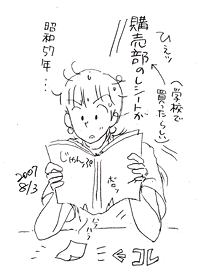 ひえッ
購売部の
レシートが
(学校で
買ったらしい)
昭和57年…
じゃんぷ
ボロッ
2007
8/3
パラパラ
←コレ